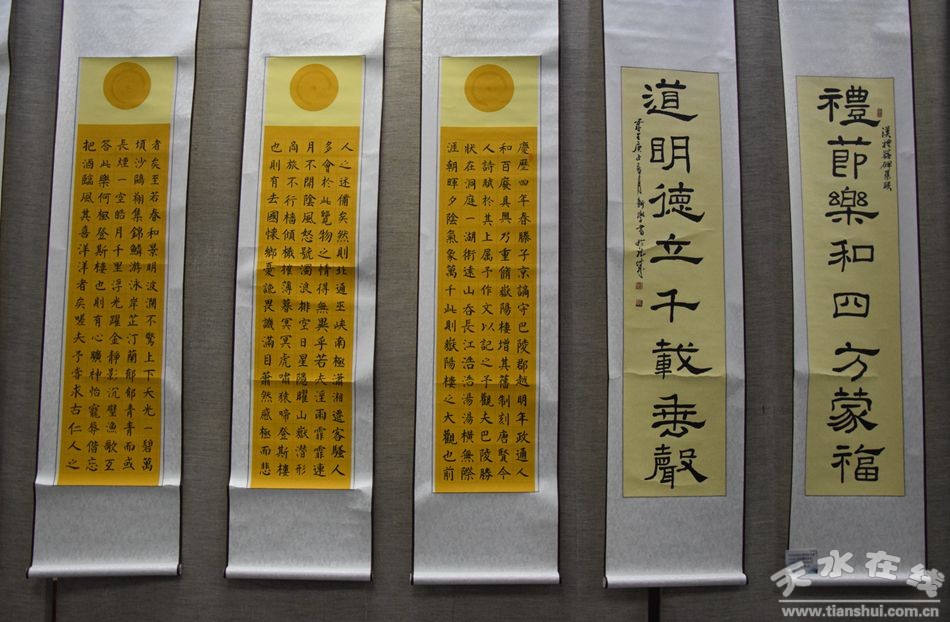 禮節樂和四方蒙福
漢禮器碑集聯
道明德立千載垂聲
慶歷四年春滕子京謫守巴陵郡越明年政通人
和百廢具興乃重脩嶽陽樓增其舊制刻唐賢今
人詩賦於其上屬予作文以記之予觀夫巴陵勝
狀在洞庭一湖銜遠山吞長江浩浩湯湯橫無際
涯朝暉夕陰氣象萬千此則嶽陽樓之大觀也前
人之述備矣然則北通巫峽南極瀟湘遷客騷人
多會於此覽物之情得無異乎若夫淫雨霏霏連
月不開陰風怒號濁浪排空日星隱曜山嶽潛形
商旅不行檣傾檝摧薄暮冥冥虎嘯猿啼登斯樓
也則有去國懷鄉憂讒畏譏滿目蕭然感極而悲
者矣至若春和景明波瀾不驚上下天光一碧萬
頃沙鷗翔集錦鱗游泳岸芷汀蘭郁郁青青而或
長煙一空皓月千里浮光躍金靜影沉璧漁歌互
答此樂何極登斯樓也則有心曠神怡寵辱偕忘
把酒臨風其喜洋洋者矣嗟夫予嘗求古仁人之
天水在线
www.tianshui.com.cn